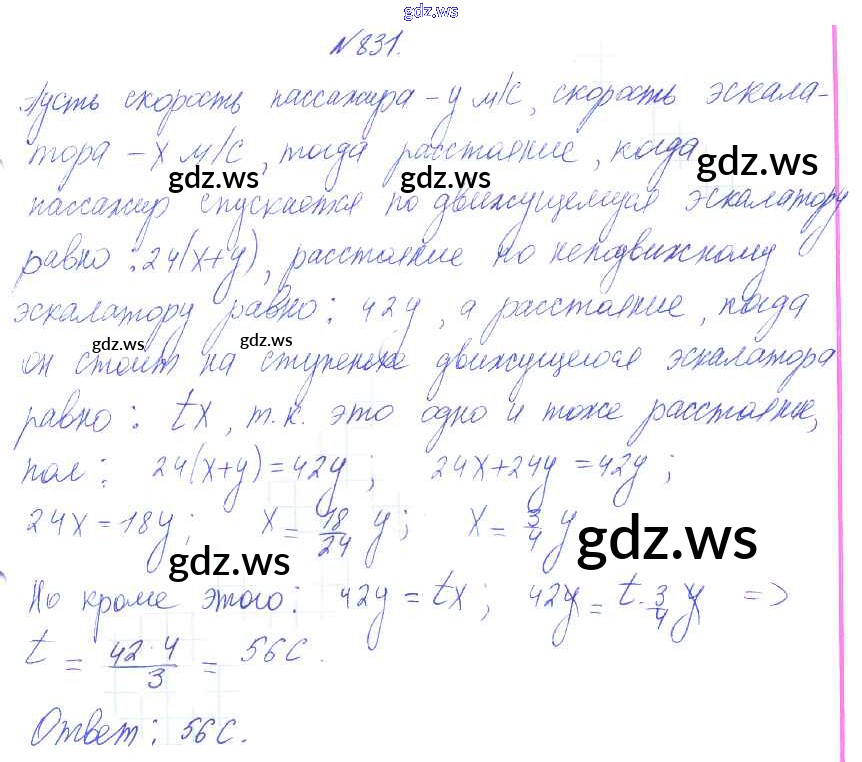 gdz.ws
№831.
Пусть скорость пассажира – у м/с, скорость эскала-
тора – х м/с, тогда расстояние, когда
gdz.ws
gdz.ws gdz.ws
пассажир спускается по движущемуся эскалатору
равно: 24(х+у), расстояние по неподвижному
эскалатору равно: 42у, а расстояние, когда
gdz.ws gdz.ws
он стоит на ступеньке движущегося эскалатора
равно: tx, т.к. это одно и тоже расстояние,
пол: 24(х+у)=42у; 24х+24у=42у;
24х=18у; х= 18/24 у; х= 3/4 у
gdz.ws gdz.ws
Но кроме этого: 42у=tx; 42у=t·3/4 у =>
t = 42·4/3 = 56с.
Ответ: 56с.